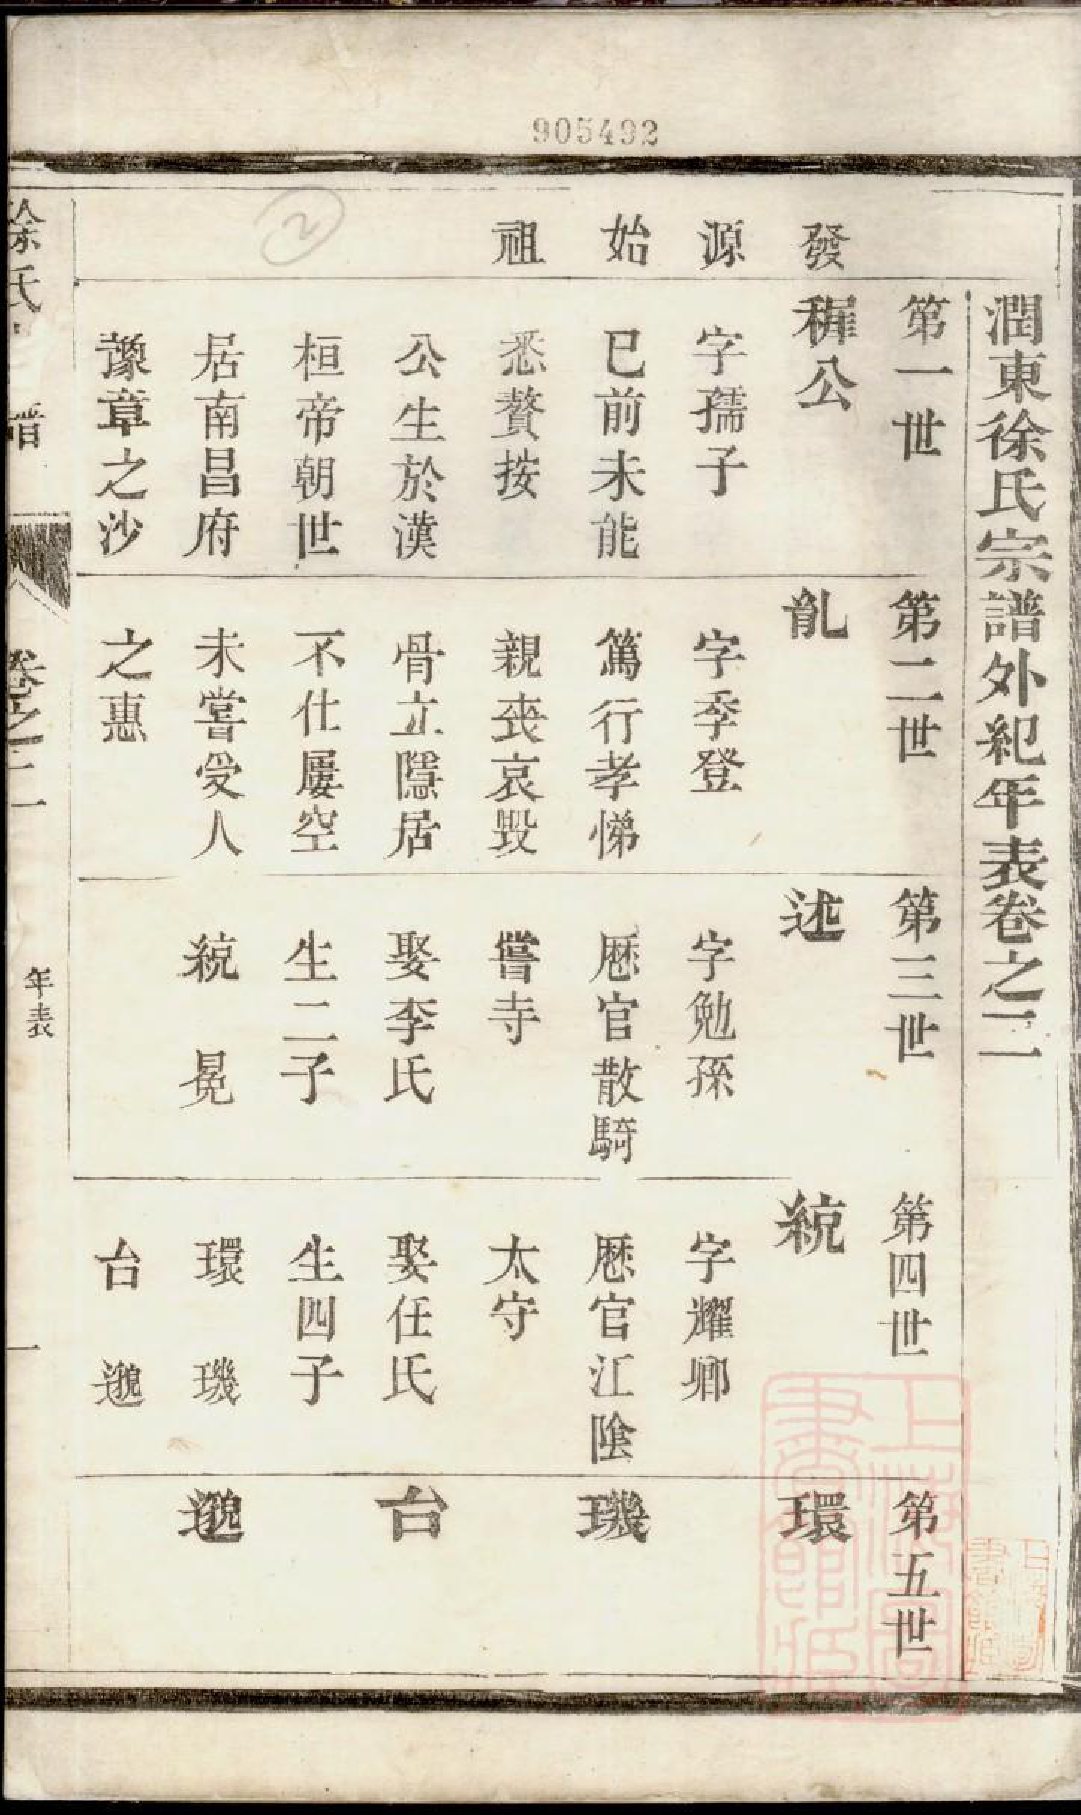 905492
潤東徐氏宗譜外紀年表卷之二
發
源
始
祖
②
第一世
穉公
字孺子
已前未能
悉贅按
公生於漢
桓帝朝世
居南昌府
豫章之沙
第二世
胤
字季登
篤行孝悌
親喪哀毀
骨立隱居
不仕屢空
未嘗受人
之惠
第三世
述
字勉孫
歷官散騎
嘗寺
娶李氏
生二子
統 晃
第四世
統
字耀卿
歷官江陰
太守
娶任氏
生四子
環 璣
台 邈
第五世
環
璣
台
邈
徐氏宗譜
卷之二
年表
一
上海圖書館藏
上海圖書館藏